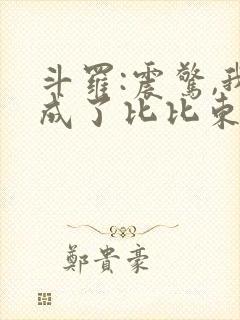 斗羅:震驚,我
成了比比東
鄭貴豪